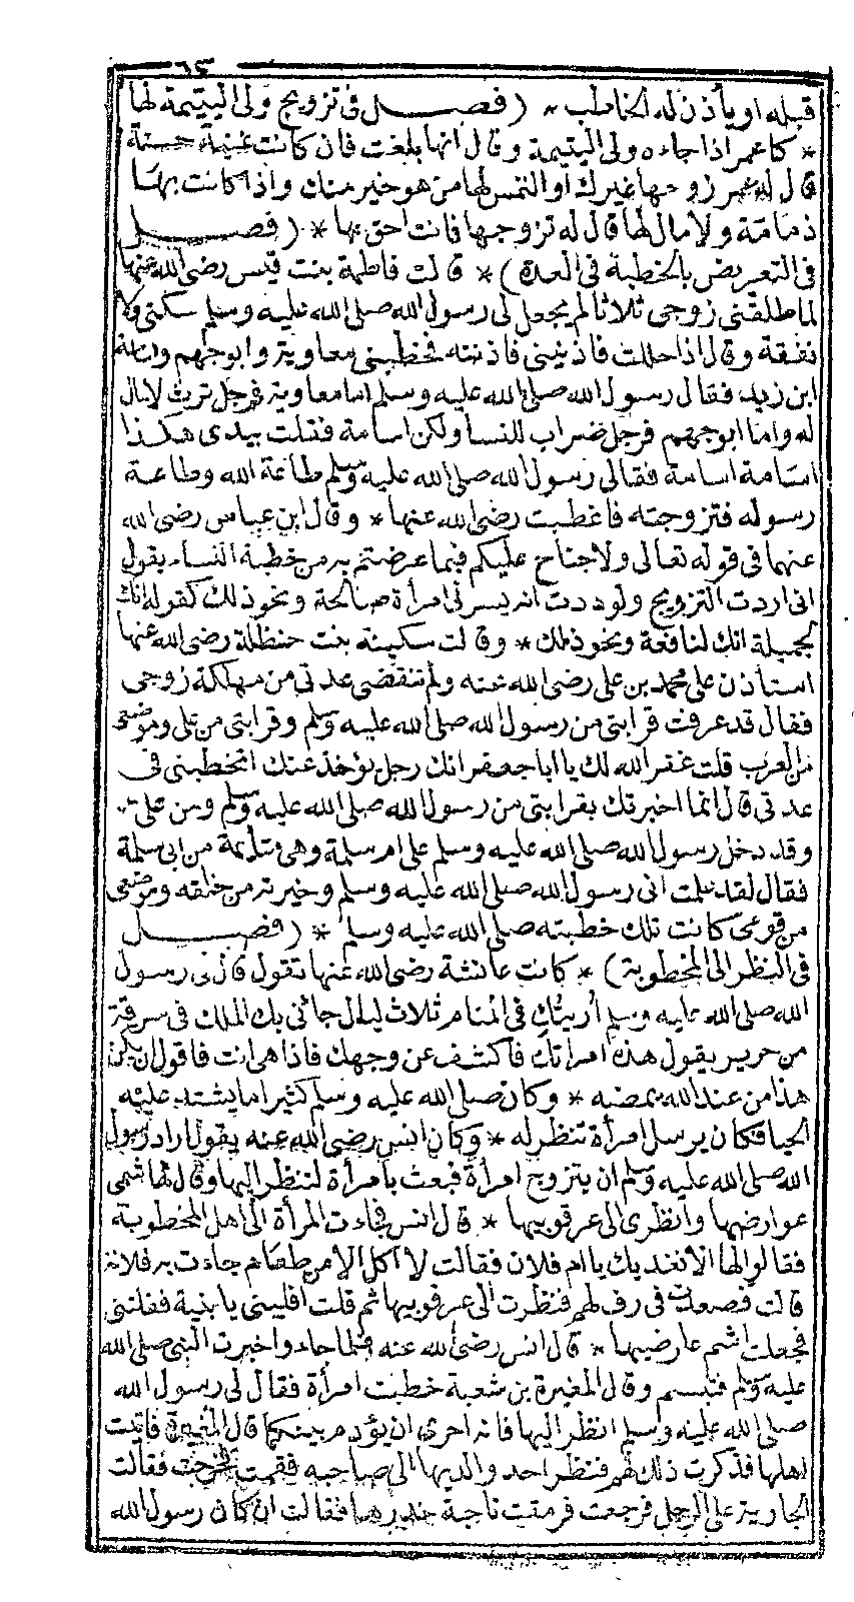 ٦٣
قبله او يأذن له الخاطب * (فصل فى تزويج ولى اليتيمة لها
* كا عمر اذا جاءه ولى اليتيمة وقال انها بلغت فان كانت غنية حسنة
قال له عمر زوجها غيرك او التمس لها من هو خير منك واذا كانت بها
ذمامة ولا مال لها قال له تزوجها فانت احق بها * (فصل
فى التعريض بالخطبة فى العدة) * قالت فاطمة بنت قيس رضى الله عنها
لما طلقنى زوجى ثلاثا لم يجعل لى رسول الله صلى الله عليه وسلم سكنى ولا
نفقة وقال اذا حللت فاذنينى فاذنته فخطبنى معاوية وابوجهم واسامة
ابن زيد فقال رسول الله صلى الله عليه وسلم اما معاوية فرجل ترب لا مال
له واما ابوجهم فرجل ضراب للنسا ولكن اسامة فقلت بيدى هكذا
اسامة اسامة فقال لى رسول الله صلى الله عليه وسلم طاعة الله وطاعة
رسوله فتزوجته فاغطبت رضى الله عنها * وقال ابن عباس رضى الله
عنهما فى قوله تعالى ولا جناح عليكم فيما عرضتم به من خطبة النساء يقول
انى اردت التزويج ولوددت انه يسر لى امرأة صالحة ونحو ذلك كقوله انك
لجميلة انك لنافعة ونحو ذلك * وقالت سكينة بنت حنظلة رضى الله عنها
استأذن على محمد بن على رضى الله عنه ولم تنقضى عدتى من مهلكة زوجى
فقال قد عرفت قرابتى من رسول الله صلى الله عليه وسلم وقرابتى من على وموضعى
من العرب قلت غفر الله لك يا ابا جعفر انك رجل يؤخذ عنك اتخطبنى فى
عدتى قال انما اخبرتك بقرابتى من رسول الله صلى الله عليه وسلم ومن على
وقد دخل رسول الله صلى الله عليه وسلم على ام سلمة وهى متأيمة من ابى سلمة
فقال لقد علمت انى رسول الله صلى الله عليه وسلم وخيرته من خلقه وموضعى
من قومى كانت تلك خطبته صلى الله عليه وسلم * (فصل
فى النظر الى المخطوبة) * كانت عائشة رضى الله عنها تقول قال لى رسول
الله صلى الله عليه وسلم أريتك فى المنام ثلاث ليال جائنى بك الملك فى سرقة
من حرير يقول هذه امراتك فاكشف عن وجهك فاذا هى انت فاقول ان يكن
هذا من عند الله يمضه * وكان صلى الله عليه وسلم كثيرا ما يشتد عليه
الحيا فكان يرسل امرأة تنظر له * وكان انس رضى الله عنه يقول اراد رسول
الله صلى الله عليه وسلم ان يتزوج امرأة فبعث بامرأة لتنظر اليها وقال لها شمى
عوارضها وانظرى الى عرقوبيها * قال انس فجاءت المرأة الى اهل المخطوبة
فقالوا لها الا نغديك يا ام فلان فقالت لا آكل الا من طعام جاءت به فلانة
قالت فصعدت فى رف لهم فنظرت الى عرقوبيها ثم قلت افلينى يا بنية ففلتنى
فجعلت اشم عارضيها * قال انس رضى الله عنه فلما جاء واخبرت النبى صلى الله
عليه وسلم فتبسم وقال المغيرة بن شعبة خطبت امرأة فقال لى رسول الله
صلى الله عليه وسلم انظر اليها فانه احرى ان يؤدم بينكما قال المغيرة فاتيت
اهلها فذكرت ذلك لهم فنظر احد والديها الى صاحبه فقمت فخرجت فقالت
الجارية على الرجل فرجعت فرمقت ناحية خدرها فقالت ان كان رسول الله